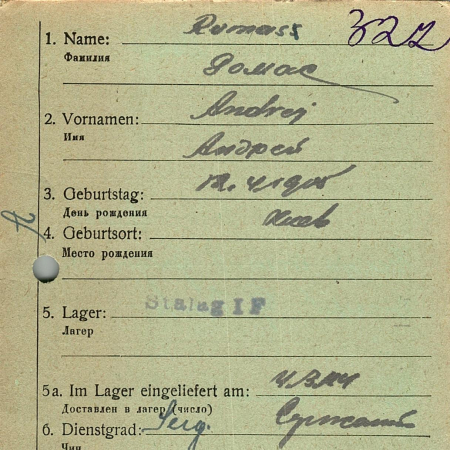 322
1. Name: Romass
Фамилия
Ромас
2. Vornamen: Andrej
Имя
Андрей
3. Geburtstag:
День рождения
Киев
4. Geburtsort:
Место рождения
Stalag I F
5. Lager:
Лагерь
5a. Im Lager eingeliefert am:
Доставлен в лагерь (число)
6. Dienstgrad: Serg. Сержант
Чин